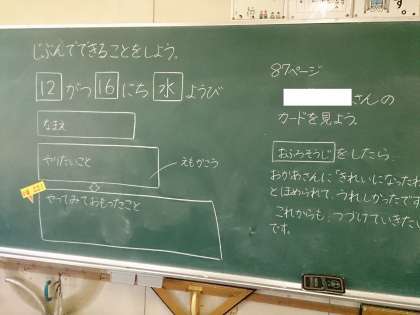 じぶんでできることをしよう。
12 がつ 16 にち 水 ようび
なまえ
やりたいこと
えもかこう
やってみておもったこと
87ページ
さんの
カードを見よう。
おふろそうじ をしたら、
おかあさんに「きれいになったね
とほめられて、うれしかったです
これからも、つづけていきたい
です。